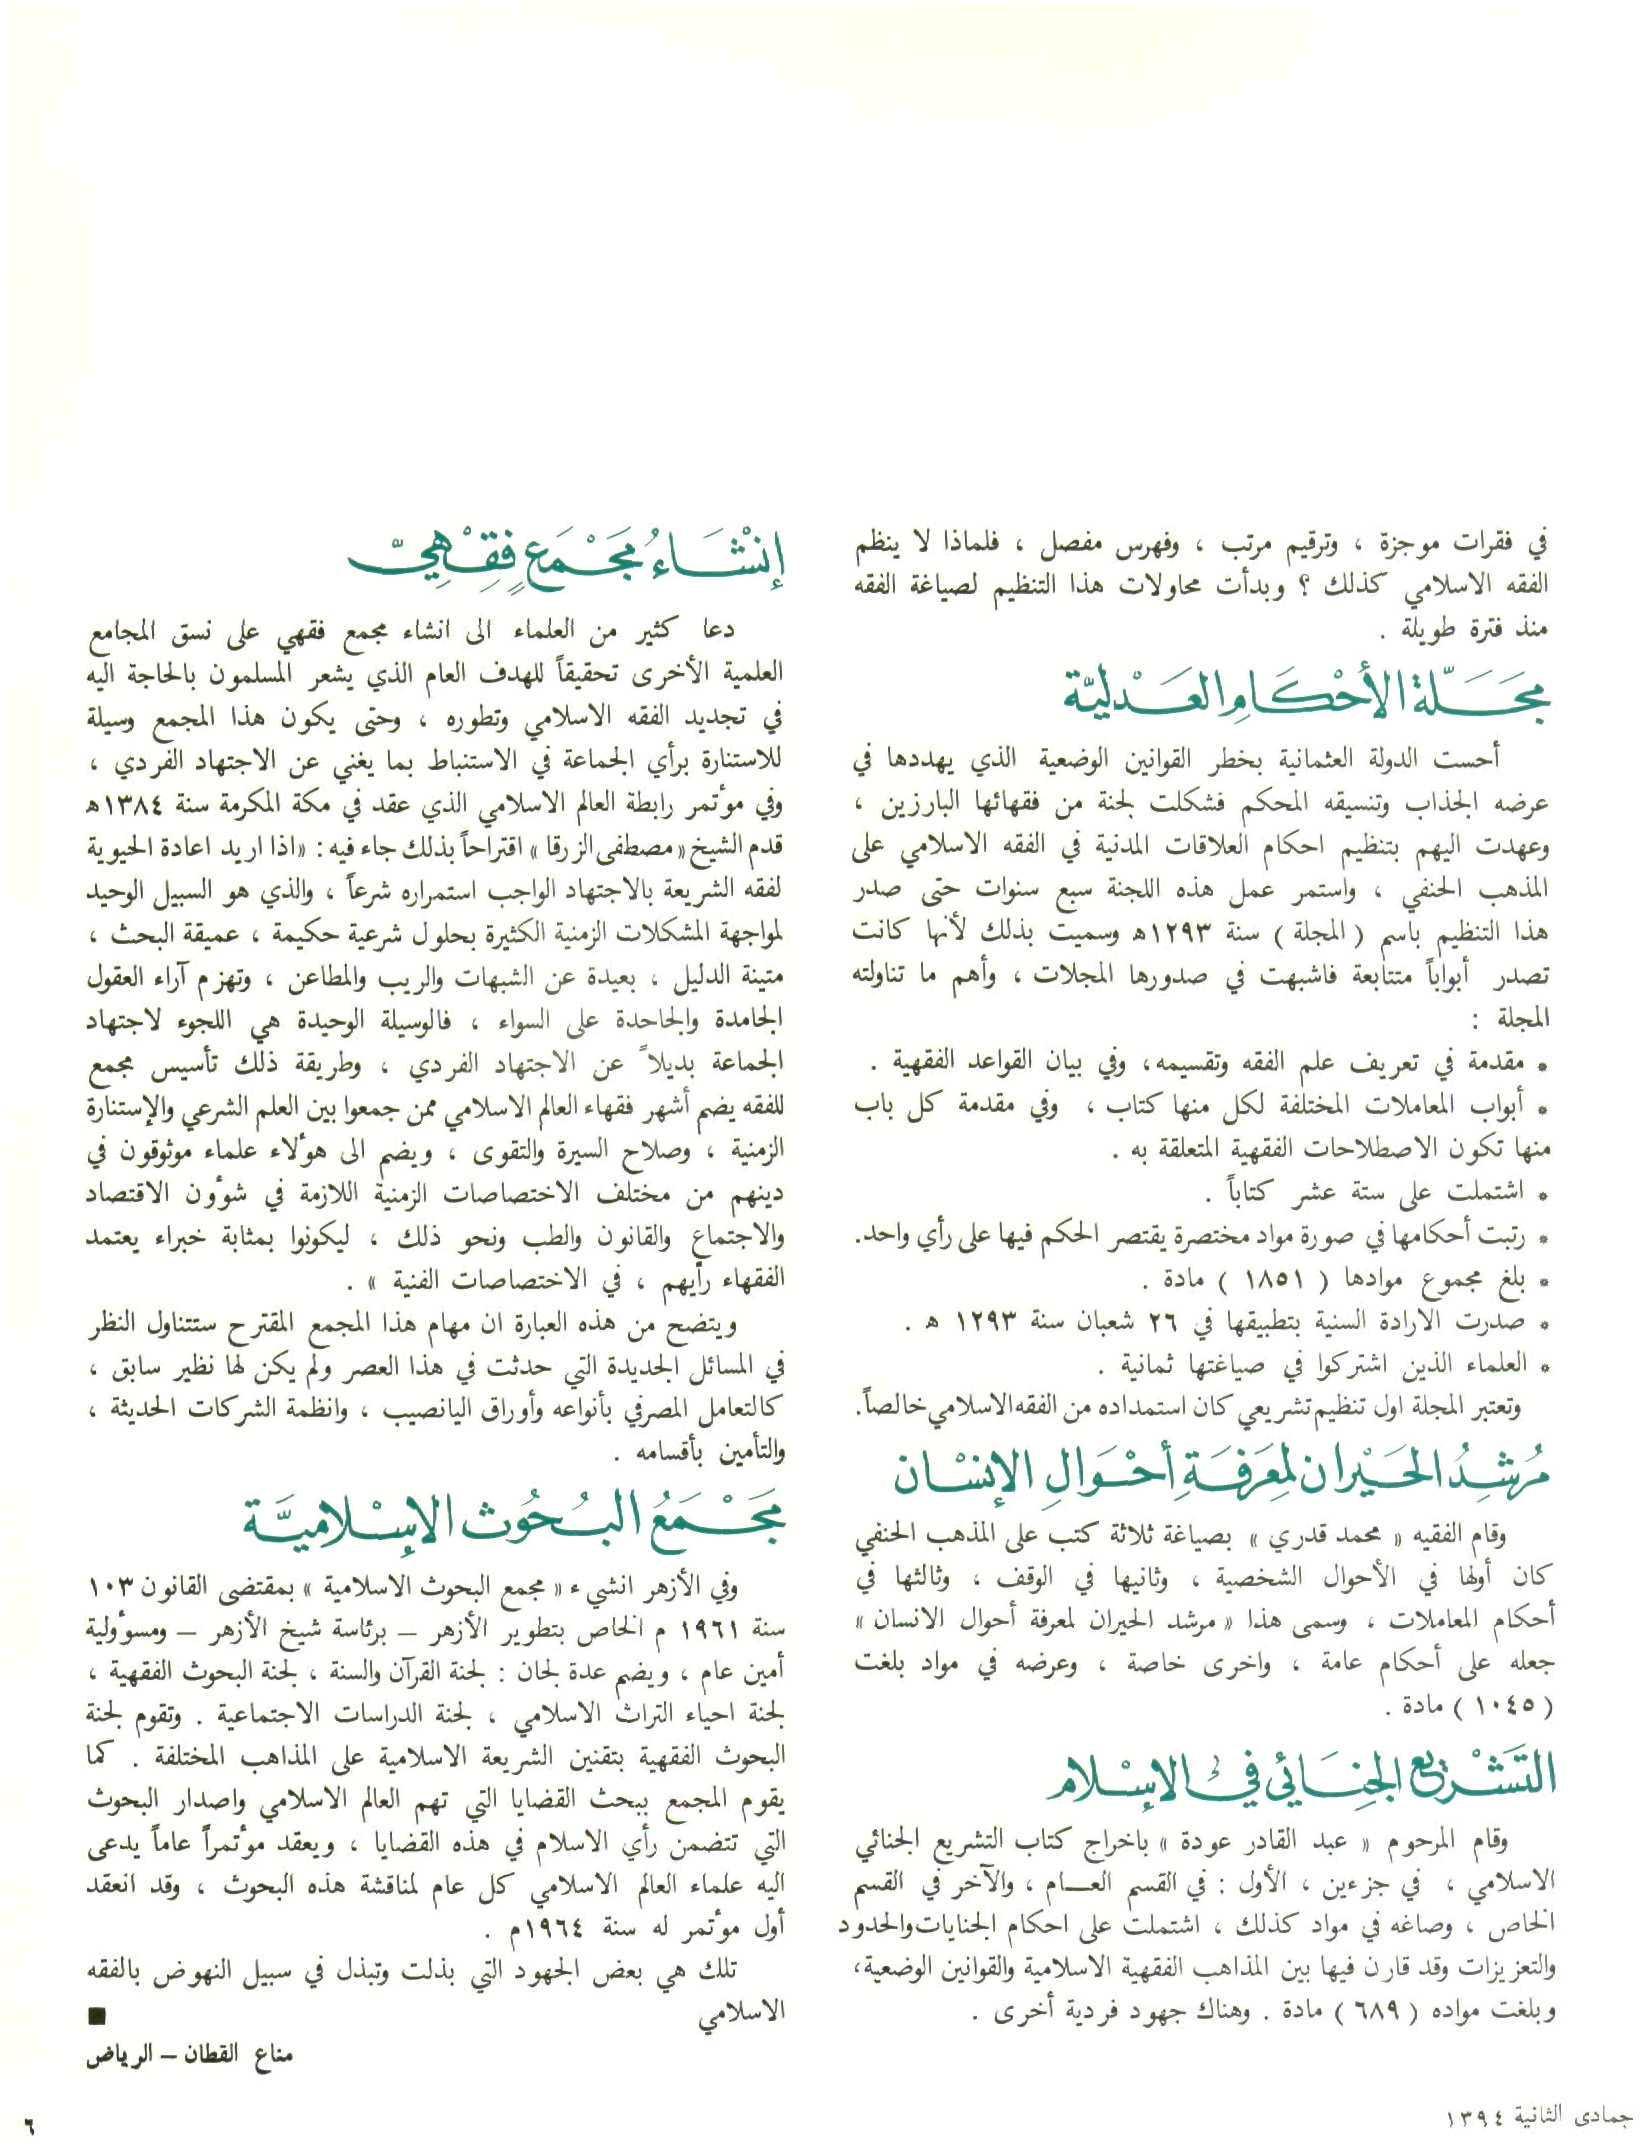 في فقرات موجزة ، وترقيم مرتب ، وفهرس مفصل ، فلماذا لا ينظم
الفقه الاسلامي كذلك ؟ وبدأت محاولات هذا التنظيم لصياغة الفقه
منذ فترة طويلة .
مَجَلّة الأحْكَامِ العَدْليّة
أحست الدولة العثمانية بخطر القوانين الوضعية الذي يهددها في
عرضه الجذاب وتنسيقه المحكم فشكلت لجنة من فقهائها البارزين ،
وعهدت اليهم بتنظيم احكام العلاقات المدنية في الفقه الاسلامي على
المذهب الحنفي ، واستمر عمل هذه اللجنة سبع سنوات حتى صدر
هذا التنظيم باسم ( المجلة ) سنة ١٢٩٣ه وسميت بذلك لأنها كانت
تصدر أبواباً متتابعة فاشبهت في صدورها المجلات ، وأهم ما تناولته
المجلة :
* مقدمة في تعريف علم الفقه وتقسيمه، وفي بيان القواعد الفقهية .
* أبواب المعاملات المختلفة لكل منها كتاب ، وفي مقدمة كل باب
منها تكون الاصطلاحات الفقهية المتعلقة به .
* اشتملت على ستة عشر كتاباً .
* رتبت أحكامها في صورة مواد مختصرة يقتصر الحكم فيها على رأي واحد.
* بلغ مجموع موادها ( ١٨٥١ ) مادة .
* صدرت الارادة السنية بتطبيقها في ٢٦ شعبان سنة ١٢٩٣ ه .
* العلماء الذين اشتركوا في صياغتها ثمانية .
وتعتبر المجلة اول تنظيم تشريعي كان استمداده من الفقه الاسلامي خالصاً.
مُرشِدُ الحَيْران لمِعَرفَةِ أحْوَالِ الإنسْان
وقام الفقيه « محمد قدري » بصياغة ثلاثة كتب على المذهب الحنفي
كان أولها في الأحوال الشخصية ، وثانيها في الوقف ، وثالثها في
أحكام المعاملات ، وسمى هذا « مرشد الحيران لمعرفة أحوال الانسان »
جعله على أحكام عامة ، واخرى خاصة ، وعرضه في مواد بلغت
( ١٠٤٥ ) مادة .
التَشْريع الجِنَائي في الإسْلام
وقام المرحوم « عبد القادر عودة » باخراج كتاب التشريع الجنائي
الاسلامي ، في جزءين ، الأول : في القسم العـام ، والآخر في القسم
الخاص ، وصاغه في مواد كذلك ، اشتملت على احكام الجنايات والحدود
والتعزيزات وقد قارن فيها بين المذاهب الفقهية الاسلامية والقوانين الوضعية،
وبلغت مواده ( ٦٨٩ ) مادة . وهناك جهود فردية أخرى .
إنْشَاءُ مَجْمَعٍ فِقْهِيّ
دعا كثير من العلماء الى انشاء مجمع فقهي على نسق المجامع
العلمية الأخرى تحقيقاً للهدف العام الذي يشعر المسلمون بالحاجة اليه
في تجديد الفقه الاسلامي وتطوره ، وحتى يكون هذا المجمع وسيلة
للاستنارة برأي الجماعة في الاستنباط بما يغني عن الاجتهاد الفردي ،
وفي مؤتمر رابطة العالم الاسلامي الذي عقد في مكة المكرمة سنة ١٣٨٤ه
قدم الشيخ «مصطفى الزرقا» اقتراحاً بذلك جاء فيه : «اذا اريد اعادة الحيوية
لفقه الشريعة بالاجتهاد الواجب استمراره شرعاً ، والذي هو السبيل الوحيد
لمواجهة المشكلات الزمنية الكثيرة بحلول شرعية حكيمة ، عميقة البحث ،
متينة الدليل ، بعيدة عن الشبهات والريب والمطاعن ، وتهزم آراء العقول
الجامدة والجاحدة على السواء ، فالوسيلة الوحيدة هي اللجوء لاجتهاد
الجماعة بديلاً عن الاجتهاد الفردي ، وطريقة ذلك تأسيس مجمع
للفقه يضم أشهر فقهاء العالم الاسلامي ممن جمعوا بين العلم الشرعي والإستنارة
الزمنية ، وصلاح السيرة والتقوى ، ويضم الى هؤلاء علماء موثوقون في
دينهم من مختلف الاختصاصات الزمنية اللازمة في شؤون الاقتصاد
والاجتماع والقانون والطب ونحو ذلك ، ليكونوا بمثابة خبراء يعتمد
الفقهاء رأيهم ، في الاختصاصات الفنية » .
ويتضح من هذه العبارة ان مهام هذا المجمع المقترح ستتناول النظر
في المسائل الجديدة التي حدثت في هذا العصر ولم يكن لها نظير سابق ،
كالتعامل المصرفي بأنواعه وأوراق اليانصيب ، وانظمة الشركات الحديثة ،
والتأمين بأقسامه .
مَجْمَعُ البُحُوث الإسْلاميَّة
وفي الأزهر انشيء « مجمع البحوث الاسلامية » بمقتضى القانون ١٠٣
سنة ١٩٦١ م الخاص بتطوير الأزهر – برئاسة شيخ الأزهر – ومسؤولية
أمين عام ، ويضم عدة لجان : لجنة القرآن والسنة ، لجنة البحوث الفقهية ،
لجنة احياء التراث الاسلامي ، لجنة الدراسات الاجتماعية . وتقوم لجنة
البحوث الفقهية بتقنين الشريعة الاسلامية على المذاهب المختلفة . كما
يقوم المجمع ببحث القضايا التي تهم العالم الاسلامي واصدار البحوث
التي تتضمن رأي الاسلام في هذه القضايا ، ويعقد مؤتمراً عاماً يدعى
اليه علماء العالم الاسلامي كل عام لمناقشة هذه البحوث ، وقد انعقد
أول مؤتمر له سنة ١٩٦٤م .
تلك هي بعض الجهود التي بذلت وتبذل في سبيل النهوض بالفقه
الاسلامي ■
مناع القطان – الرياض
جمادى الثانية ١٣٩٤
٦